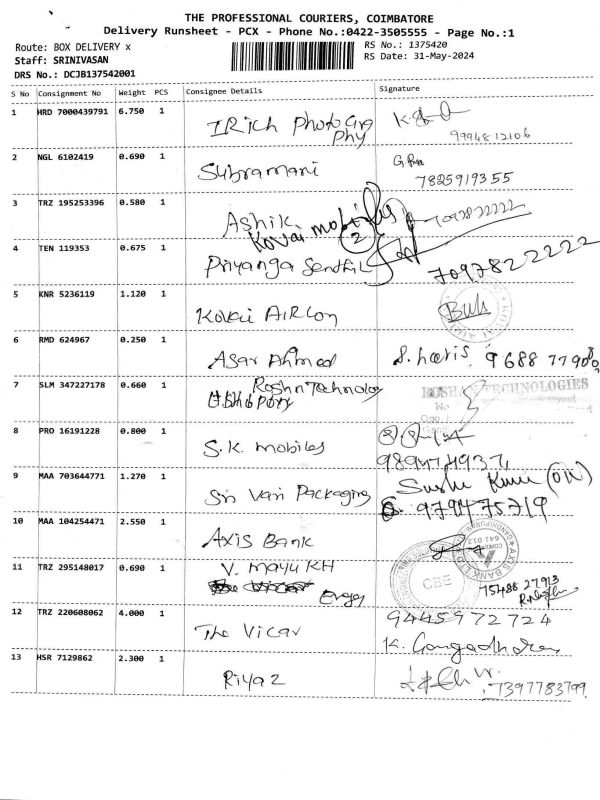 THE PROFESSIONAL COURIERS, COIMBATORE
Delivery Runsheet - PCX - Phone No.:0422-3505555 - Page No.:1
Route: BOX DELIVERY x
RS No.: 1375420
Staff: SRINIVASAN
RS Date: 31-May-2024
DRS No.: DCJB137542001
S No Consignment No Weight PCS Consignee Details Signature
1 HRD 7000439791 6.750 1 IRich Photo Gra
phy
9994812106
2 NGL 6102419 0.690 1 Subramani
7825919355
3 TRZ 195253396 0.580 1 Ashik
Kovai mobiles
2
7097822222
4 TEN 119353 0.675 1 Priyanga Senthil
7097822222
5 KNR 5236119 1.120 1 Kovai AIRCon
6 RMD 624967 0.250 1 Asar Ahmed S. haris
7 SLM 347227178 0.660 1 Roshn Technology
ROSHAN TECHNOLOGIES
8 PRO 16191228 0.800 1 S.K. mobiles
9 MAA 703644771 1.270 1 Sri Vari Packaging
979475719
10 MAA 104254471 2.550 1 Axis Bank
AXIS BANK LTD
641 012
11 TRZ 295148017 0.690 1 V. MAYUKH
CBE
75488 27913
12 TRZ 220608062 4.000 1 The Vicar
9445972724
K. Gangadharan
13 HSR 7129862 2.300 1 Riyaz
7397783799